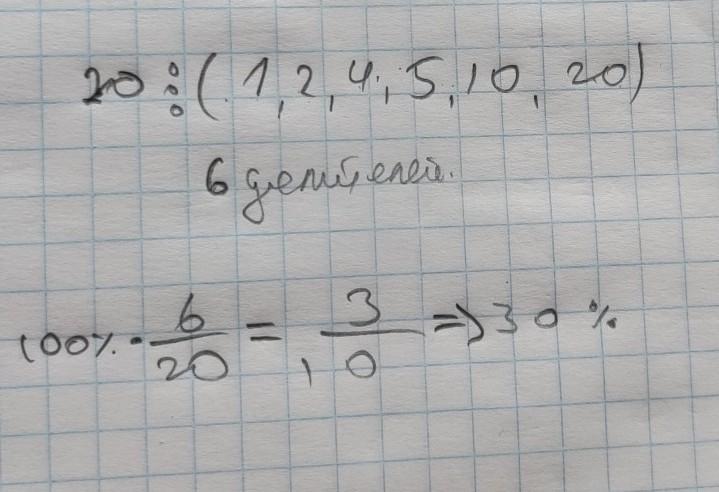 20 ⋮ (1, 2, 4, 5, 10, 20)
6 делителей.
100% · 6/20 = 3/10 => 30%